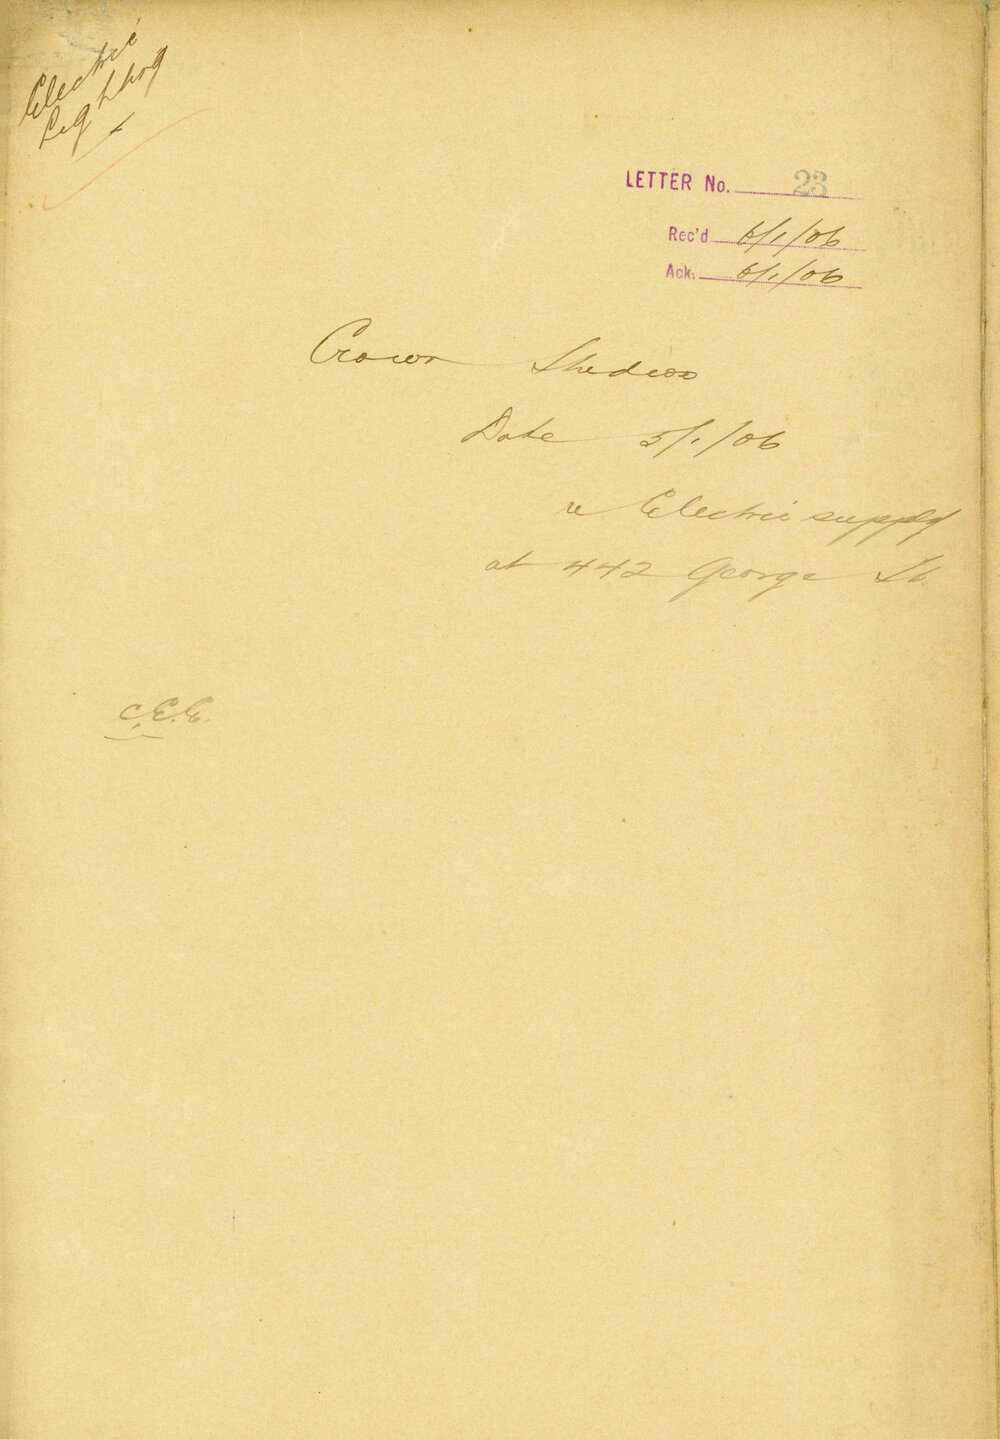 Electric
Lighting
LETTER No. 23
Rec'd 6/1/06
Ack. 6/1/06
Crown Studios
Date 5/1/06
re Electric supply
at 442 George St
C.E.E.